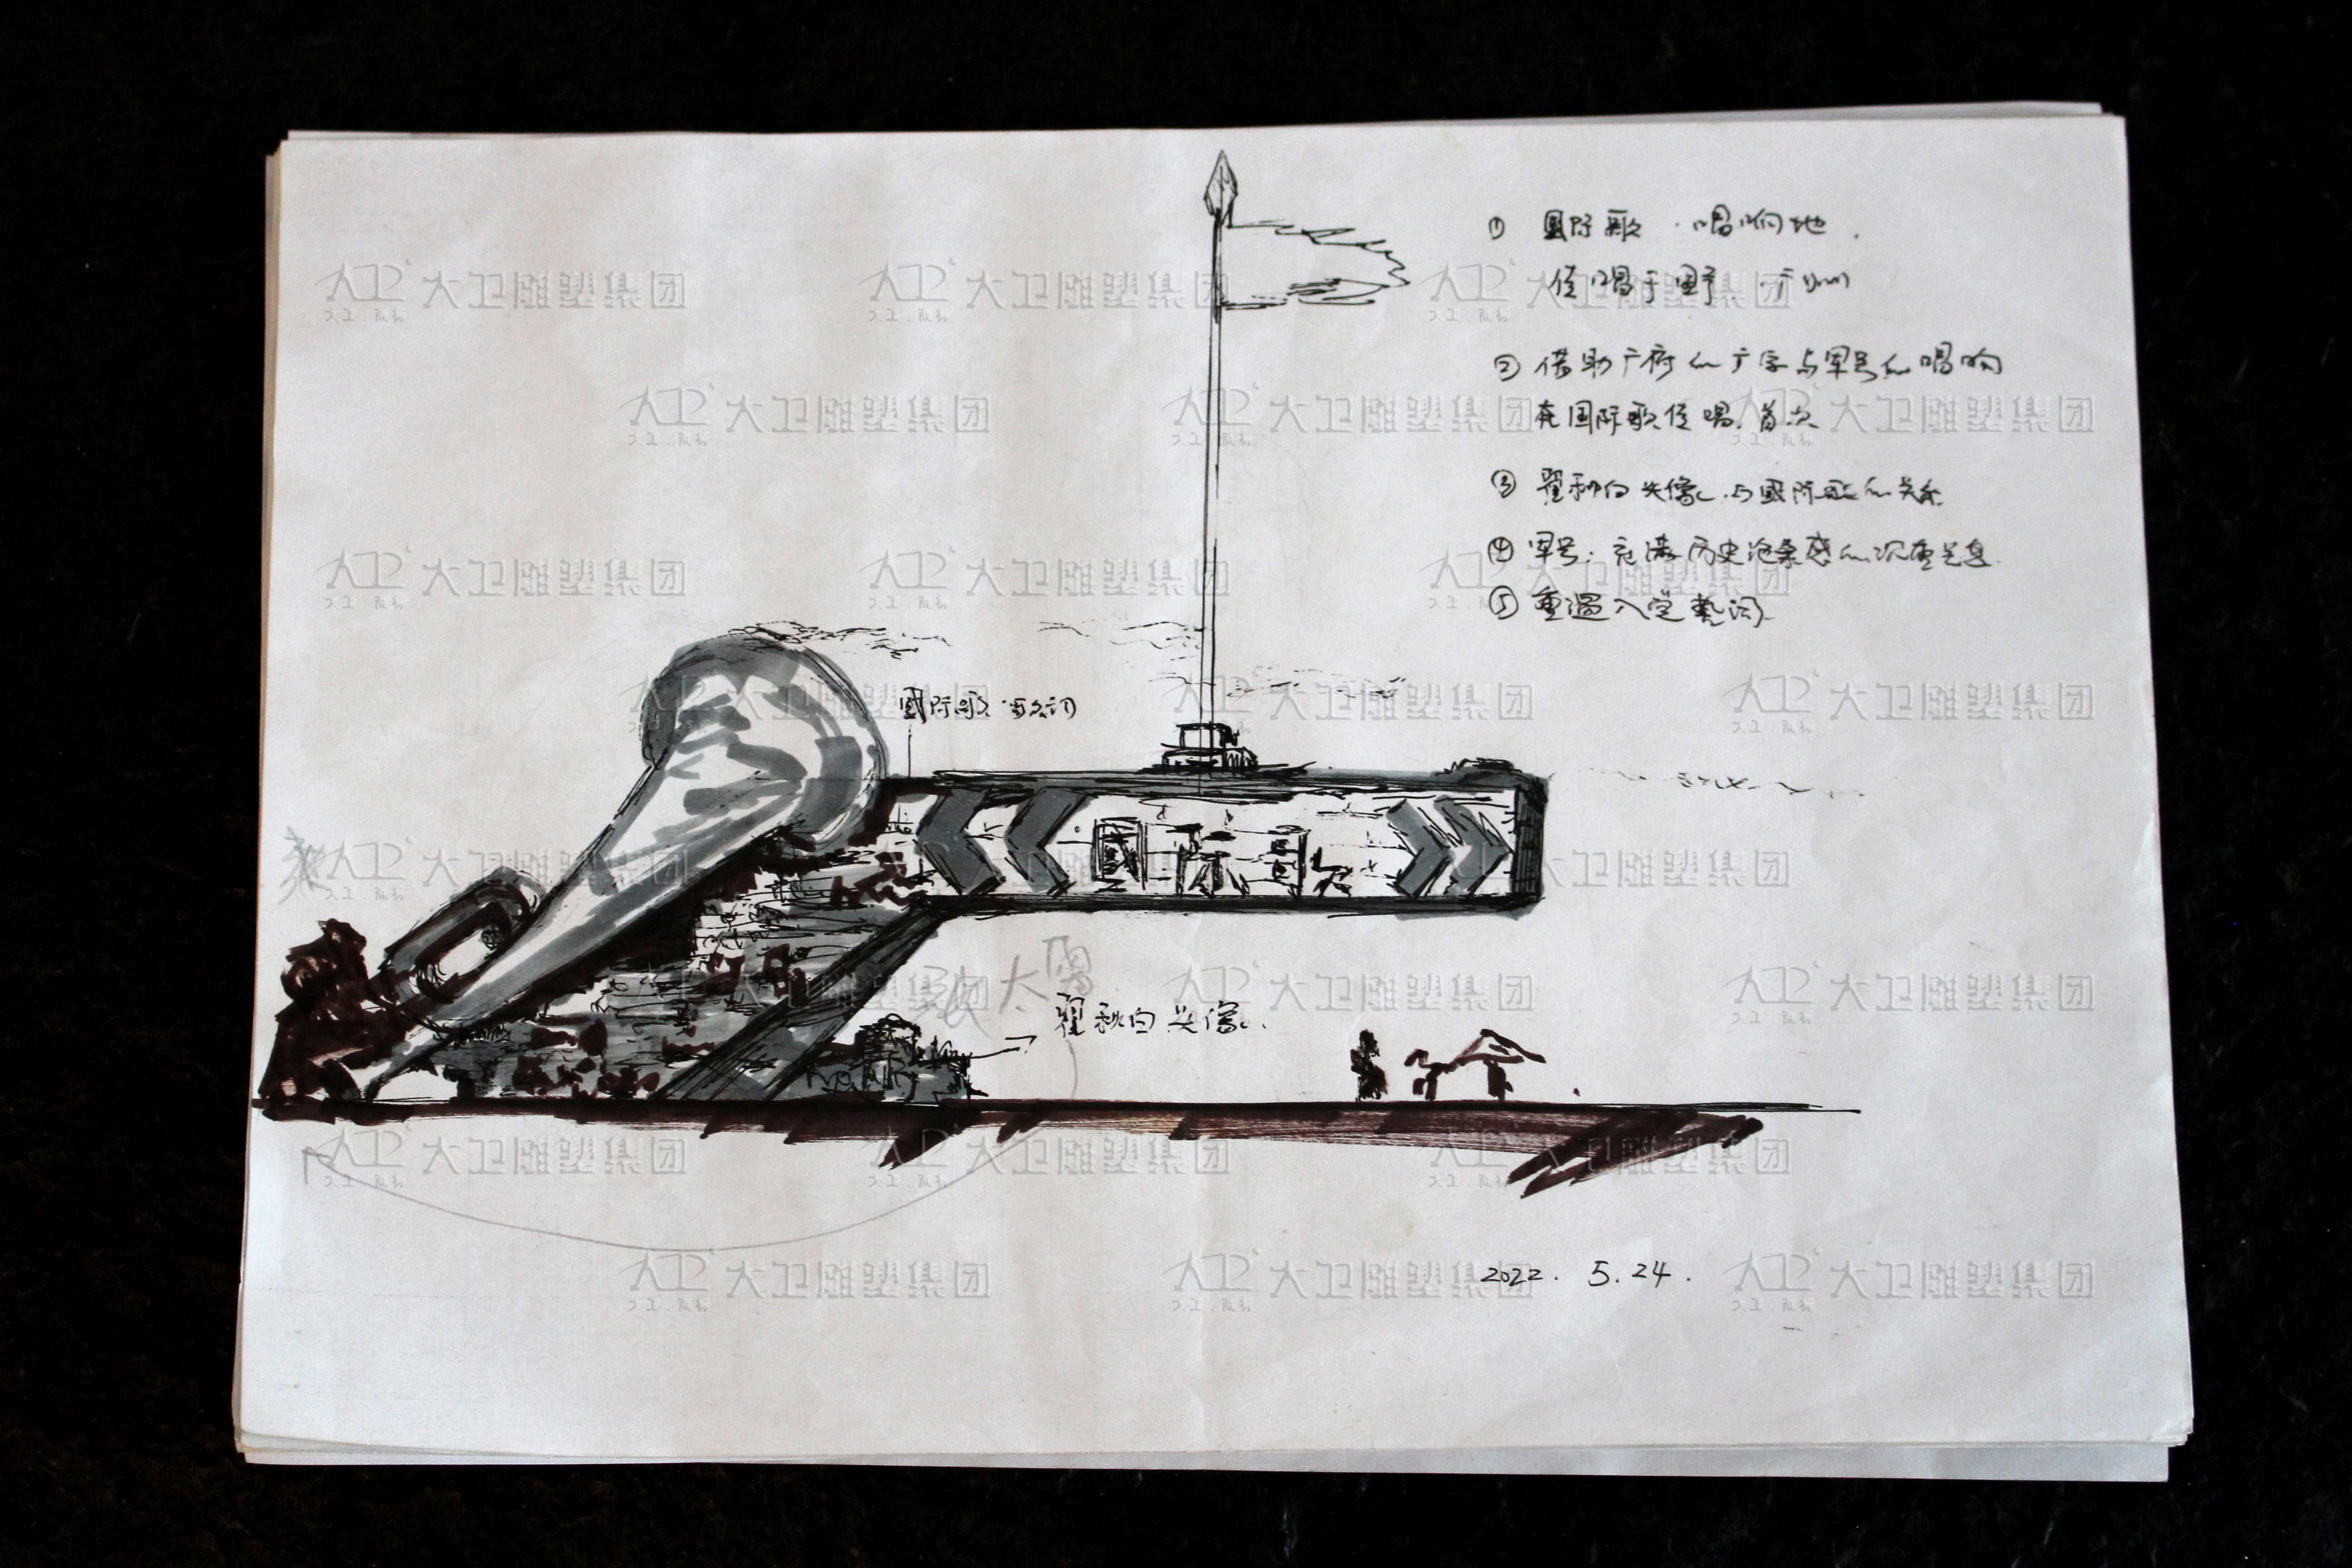 ① 國际歌 · 唱响地.
传唱于田野 广州
② 借助广府的广字与军号的唱响
在国际歌传唱. 首次
③ 瞿秋白头像. 与國际歌的关系
④ 军号: 充满历史沧桑感的沉重
⑤ 重温入党誓词.
國际歌
國际歌
瞿秋白头像.
2022. 5.24.
大卫雕塑集团